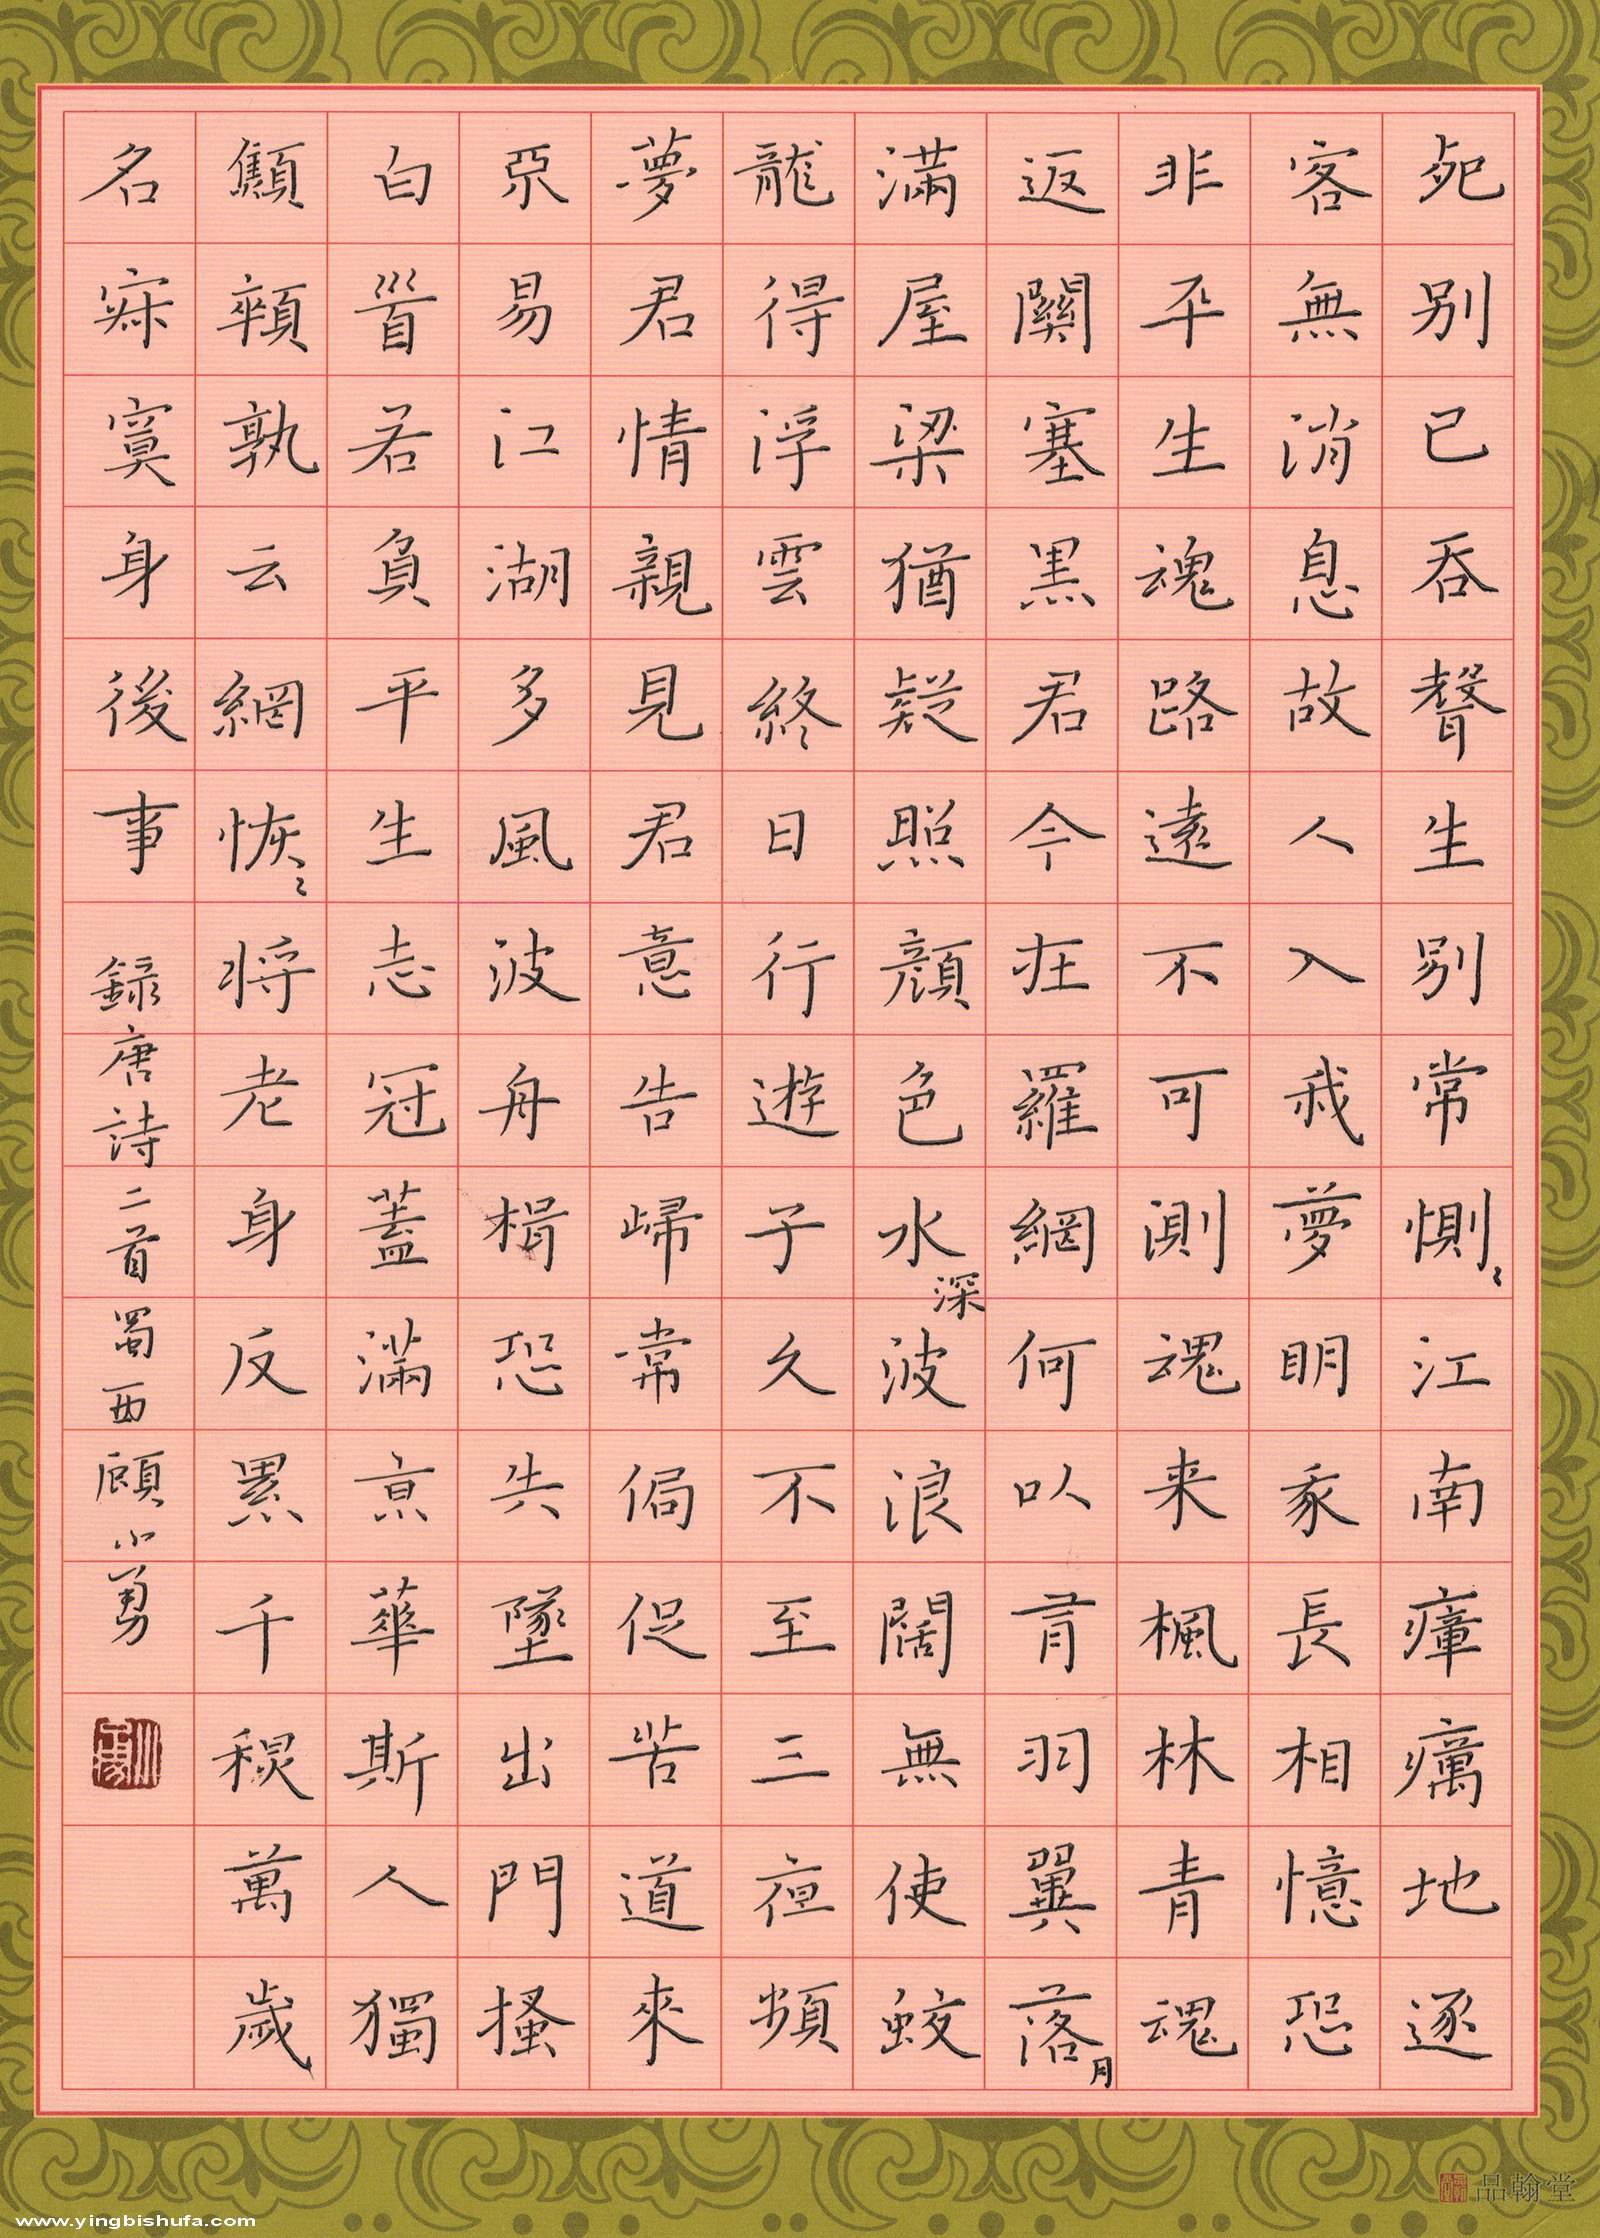 死別已吞聲生別常惻〻江南瘴癘地逐
客無消息故人入我夢明我長相憶恐
非平生魂路遠不可測魂来楓林青魂
返關塞黑君今在羅網何以有羽翼落月
滿屋梁猶疑照顔色水深波浪闊無使蛟
龍得浮雲終日行遊子久不至三夜頻
夢君情親見君意告歸常侷促苦道來
惡易江湖多風波舟楫恐失墜出門搔
白首若負平生志冠蓋滿京華斯人獨
顦顇孰云網恢〻将老身反累千秋萬歲
名寂寞身後事
錄唐詩二首蜀西顧小勇
品翰堂
www.yingbishufa.com